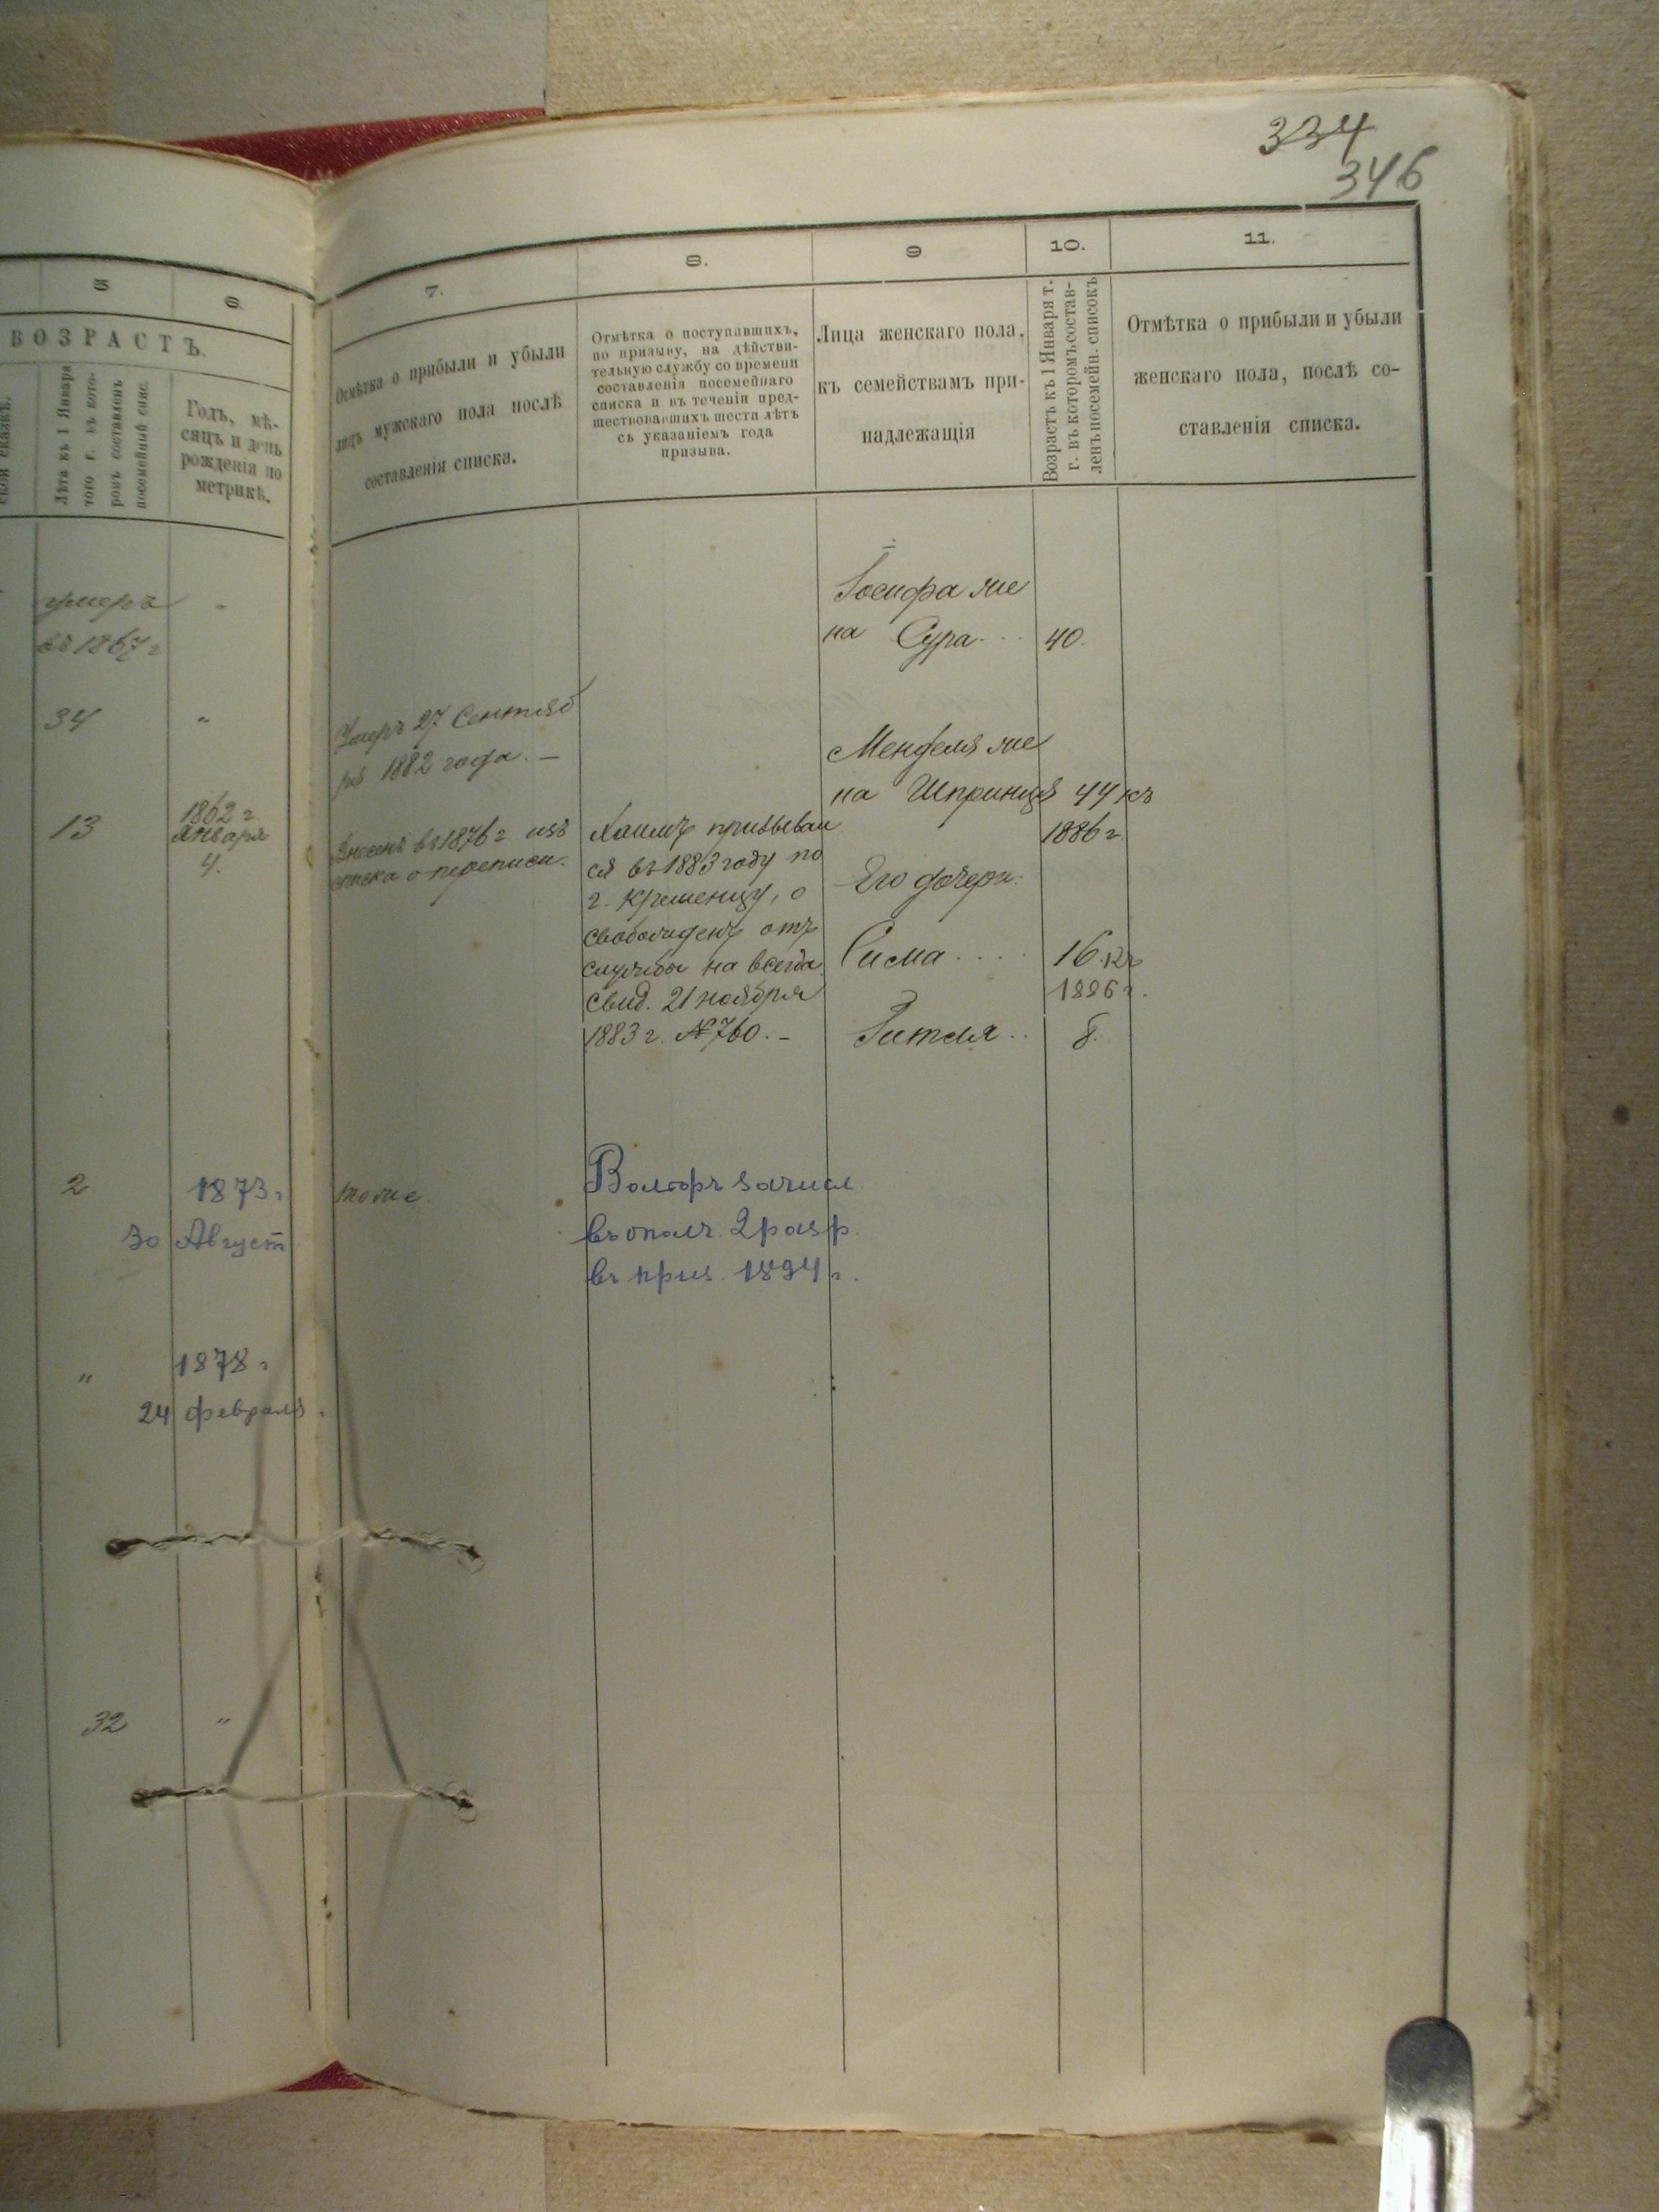 334
346
5
6.
7.
8.
9
10.
11.
ВОЗРАСТЪ.
Лѣта къ 1 Января
того г. въ кото-
ромъ составленъ
посемейный спис.
Годъ, мѣ-
сяцъ и день
рожденія по
метрикѣ.
Отмѣтка о прибыли и убыли
лицъ мужскаго пола послѣ
составленія списка.
Отмѣтка о поступавшихъ,
по призыву, на дѣйстви-
тельную службу со времени
составленія посемейнаго
списка и въ теченіи пред-
шествовавшихъ шести лѣтъ
съ указаніемъ года
призыва.
Лица женскаго пола,
къ семействамъ при-
надлежащія
Возрастъ къ 1 Января т.
г. въ которомъ состав-
ленъ посемейн. списокъ
Отмѣтка о прибыли и убыли
женскаго пола, послѣ со-
ставленія списка.
умеръ
въ 1867 г
Іосифа же
на Сура 40.
34 "
Умеръ 27 Сентяб
ря 1882 года. —
Менделя же
на Шпринця 44 къ
1886 г.
13
1862 г
Января
4.
Внесенъ въ 1876 г изъ
списка о переписи.
Хаимъ призывал
ся въ 1883 году по
г. Кременцу, о
свобожденъ отъ
службы на всегда
свид. 21 ноября
1883 г. № 760. —
Его дочери:
Сима 16 къ
1886 г.
Зитля 8.
2
1873 г
30 Август
тоже.
Волфъ зачисл
въ ополч. 2 разр.
въ приз. 1894 г.
"
1878 г
24 февраля.
32 "